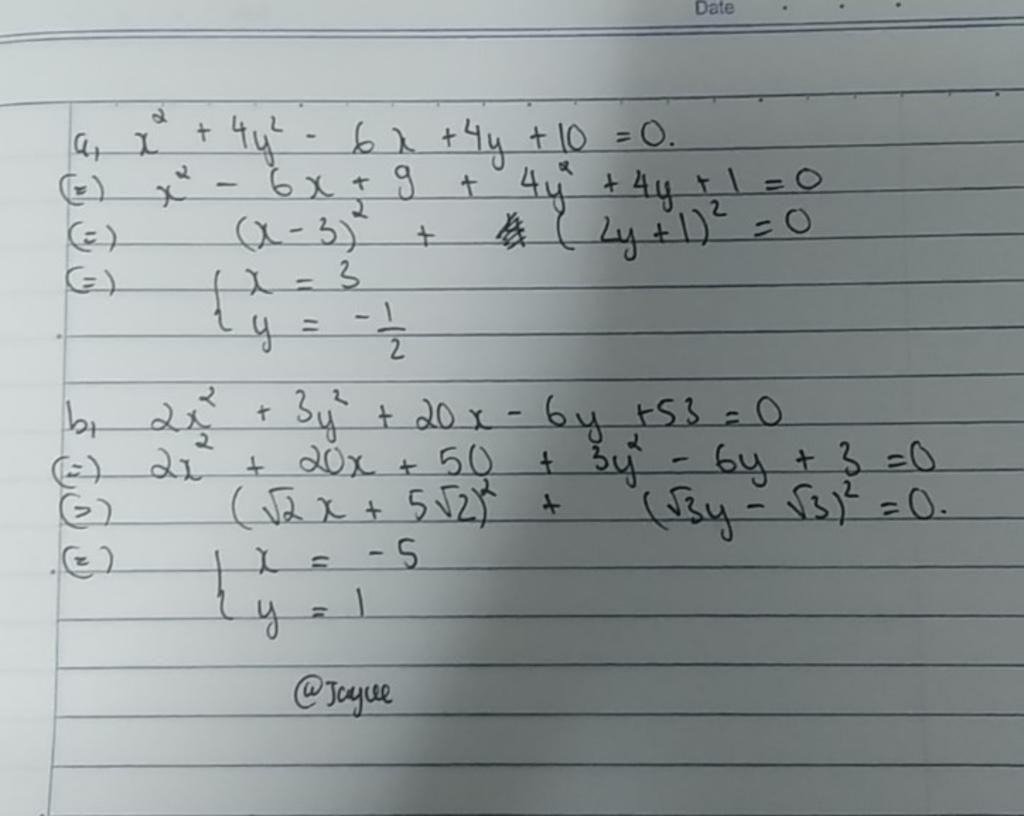 Date
a, x² + 4y² - 6x + 4y + 10 = 0.
(=) x² - 6x + 9 + 4y² + 4y + 1 = 0
(=) (x - 3)² + (2y + 1)² = 0
(=) { x = 3
y = -1/2
b, 2x² + 3y² + 20x - 6y + 53 = 0
(=) 2x² + 20x + 50 + 3y² - 6y + 3 = 0
(=) (√2 x + 5√2)² + (√3y - √3)² = 0.
(=) { x = -5
y = 1
@Jaycee